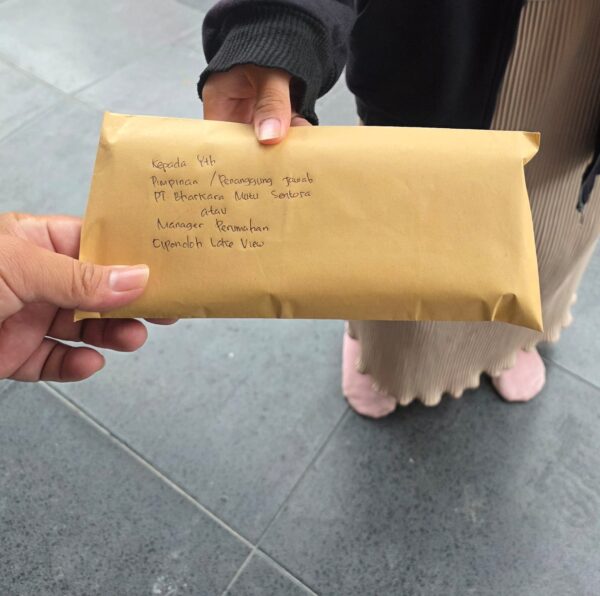 Kepada Yth
Pimpinan / Penanggung Jawab
PT Bhaskara Mutu Sentosa
atau
Manager Perumahan
Cipondoh Lake View